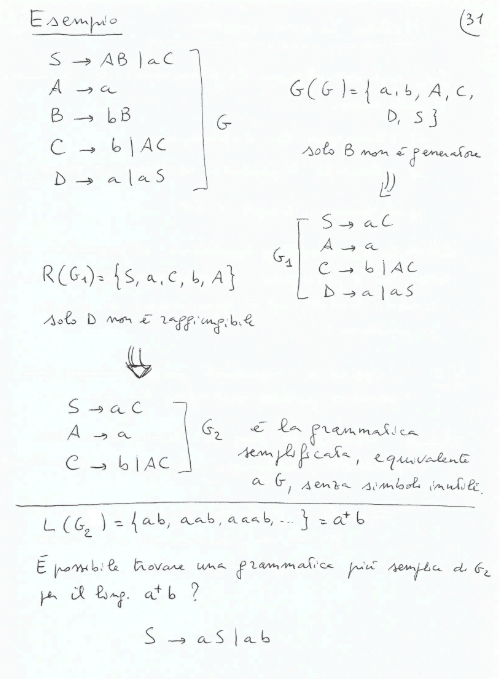 Esempio
31
S → AB | aC
A → a
B → bB
C → b | AC
D → a | aS
G
G(G) = { a, b, A, C,
D, S }
solo B non è generatore
⇓
G1
S → aC
A → a
C → b | AC
D → a | aS
R(G1) = { S, a, C, b, A }
solo D non è raggiungibile
⇓
S → aC
A → a
C → b | AC
G2
è la grammatica
semplificata, equivalente
a G, senza simboli inutili.
L(G2) = { ab, aab, aaab, ... } = a⁺b
È possibile trovare una grammatica più semplice di G2
per il ling. a⁺b ?
S → aS | ab